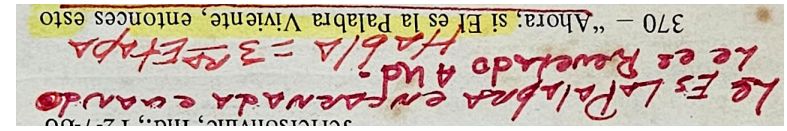 Jeffersonville, Ind., 12-7-60
El Es La Palabra encarnada cuando
Le es Revelado A Ud.
Habla = 3RA Etapa
370 – “Ahora; si El es la Palabra Viviente, entonces esto